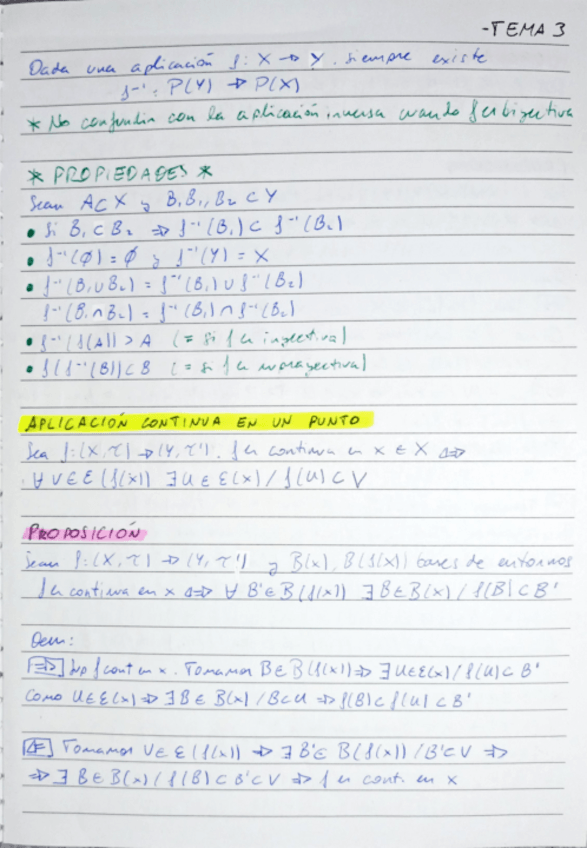 -TEMA 3
Dada una aplicación f: X → Y, siempre existe
f⁻¹: P(Y) → P(X)
* No confundir con la aplicación inversa cuando f es biyectiva
* PROPIEDADES *
Sean A⊂X y B, B₁, B₂ ⊂ Y
• Si B₁ ⊂ B₂ ⇒ f⁻¹(B₁) ⊂ f⁻¹(B₂)
• f⁻¹(∅) = ∅ y f⁻¹(Y) = X
• f⁻¹(B₁∪B₂) = f⁻¹(B₁) ∪ f⁻¹(B₂)
f⁻¹(B₁∩B₂) = f⁻¹(B₁) ∩ f⁻¹(B₂)
• f⁻¹(f(A)) ⊃ A (= si f es inyectiva)
• f(f⁻¹(B)) ⊂ B (= si f es suprayectiva)
APLICACIÓN CONTINUA EN UN PUNTO
Sea f: (X,τ) → (Y,τ'). f es continua en x ∈ X ⇔
∀ V ∈ ℰ(f(x)) ∃ U ∈ ℰ(x) / f(U) ⊂ V
PROPOSICIÓN
Sean f: (X,τ) → (Y,τ') y B(x), B(f(x)) bases de entornos
f es continua en x ⇔ ∀ B' ∈ B(f(x)) ∃ B ∈ B(x) / f(B) ⊂ B'
Dem:
⇒ Sup f cont en x. Tomamos B ∈ B(f(x)) ⇒ ∃ U ∈ ℰ(x) / f(U) ⊂ B'
Como U ∈ ℰ(x) ⇒ ∃ B ∈ B(x) / B⊂U ⇒ f(B) ⊂ f(U) ⊂ B'
⇐ Tomamos V ∈ ℰ(f(x)) ⇒ ∃ B' ∈ B(f(x)) / B' ⊂ V ⇒
⇒ ∃ B ∈ B(x) / f(B) ⊂ B' ⊂ V ⇒ f es cont. en x